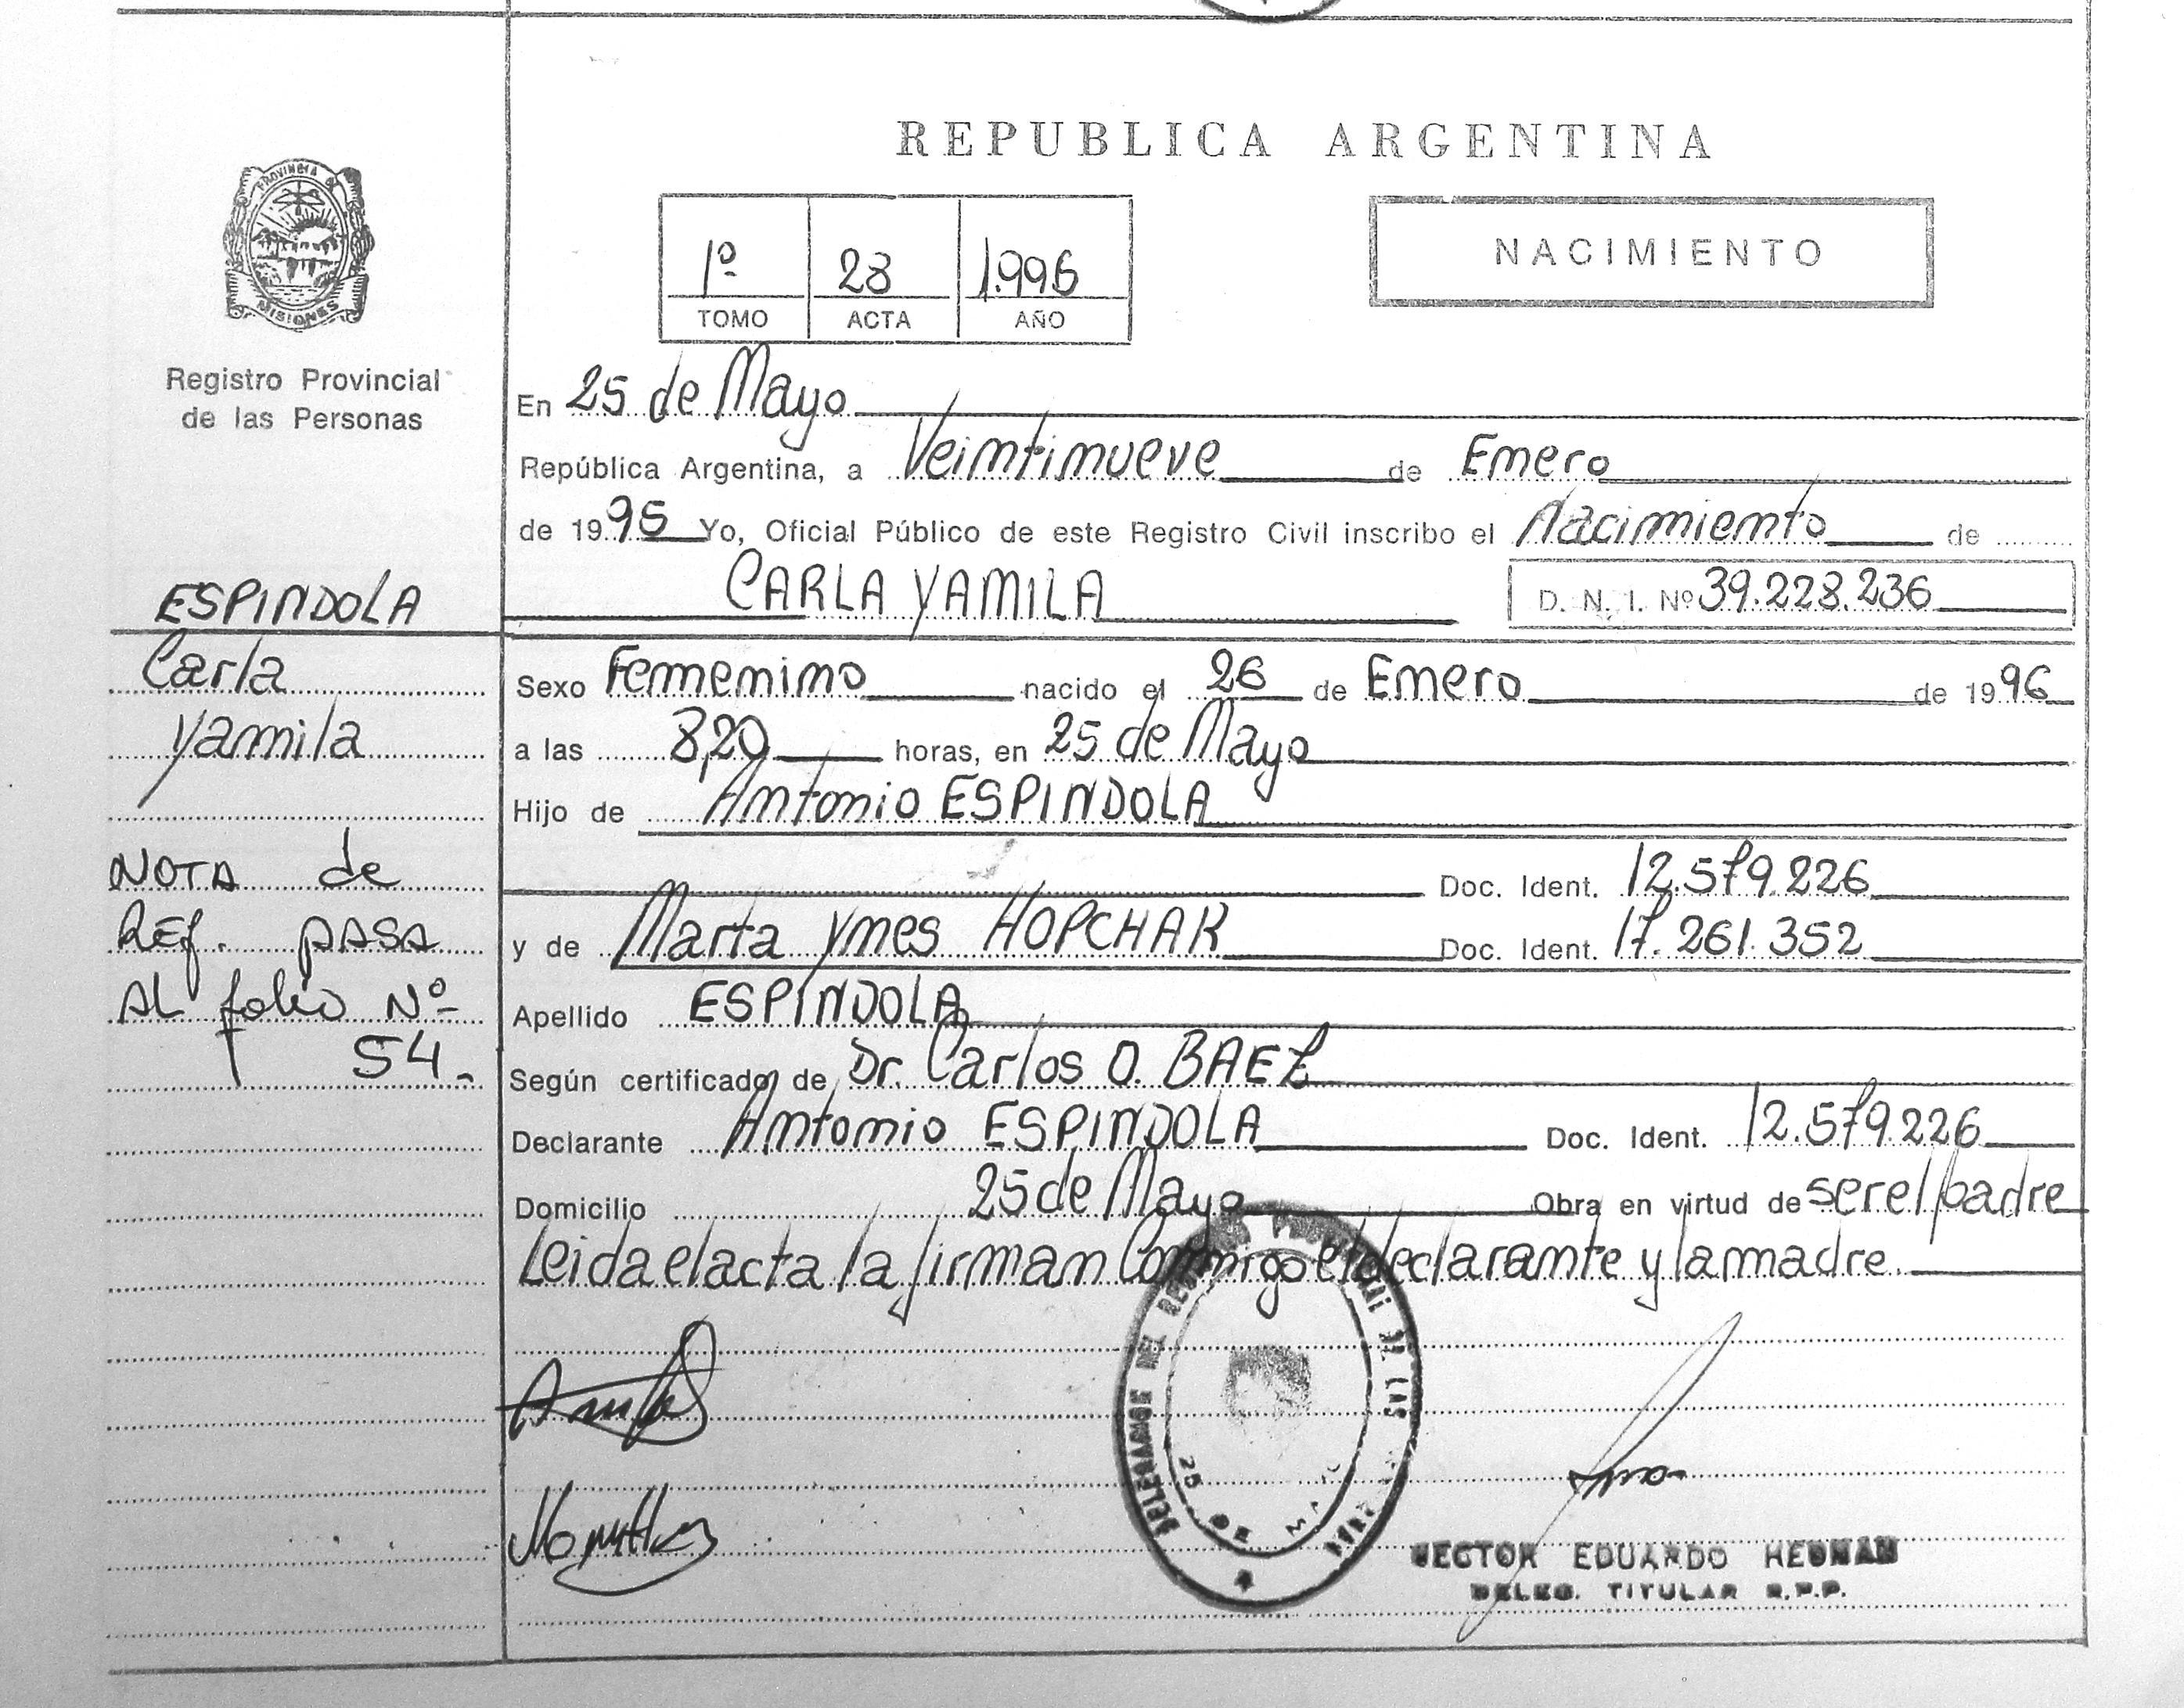 REPUBLICA ARGENTINA
PROVINCIA DE
MISIONES
Registro Provincial
de las Personas
1º 28 1.996
TOMO ACTA AÑO
NACIMIENTO
En 25 de Mayo
República Argentina, a Veintinueve de Enero
de 1995 Yo, Oficial Público de este Registro Civil inscribo el Nacimiento de
CARLA YAMILA
D. N. I. Nº 39.228.236
ESPINDOLA
Carla
Yamila
NOTA de
Ref. pasa
AL folio Nº
54.
Sexo Femenino nacido el 26 de Enero de 1996
a las 8,20 horas, en 25 de Mayo
Hijo de Antonio ESPINDOLA
Doc. Ident. 12.579.226
y de Marta Ynes HOPCHAK Doc. Ident. 17.261.352
Apellido ESPINDOLA
Según certificado de Dr. Carlos O. BAEZ
Declarante Antonio ESPINDOLA Doc. Ident. 12.579.226
Domicilio 25 de Mayo Obra en virtud de ser el padre
Leida el acta la firman Conmigo el declarante y la madre.
25 DE MAYO
HECTOR EDUARDO HEDMAN
DELEG. TITULAR R.P.P.